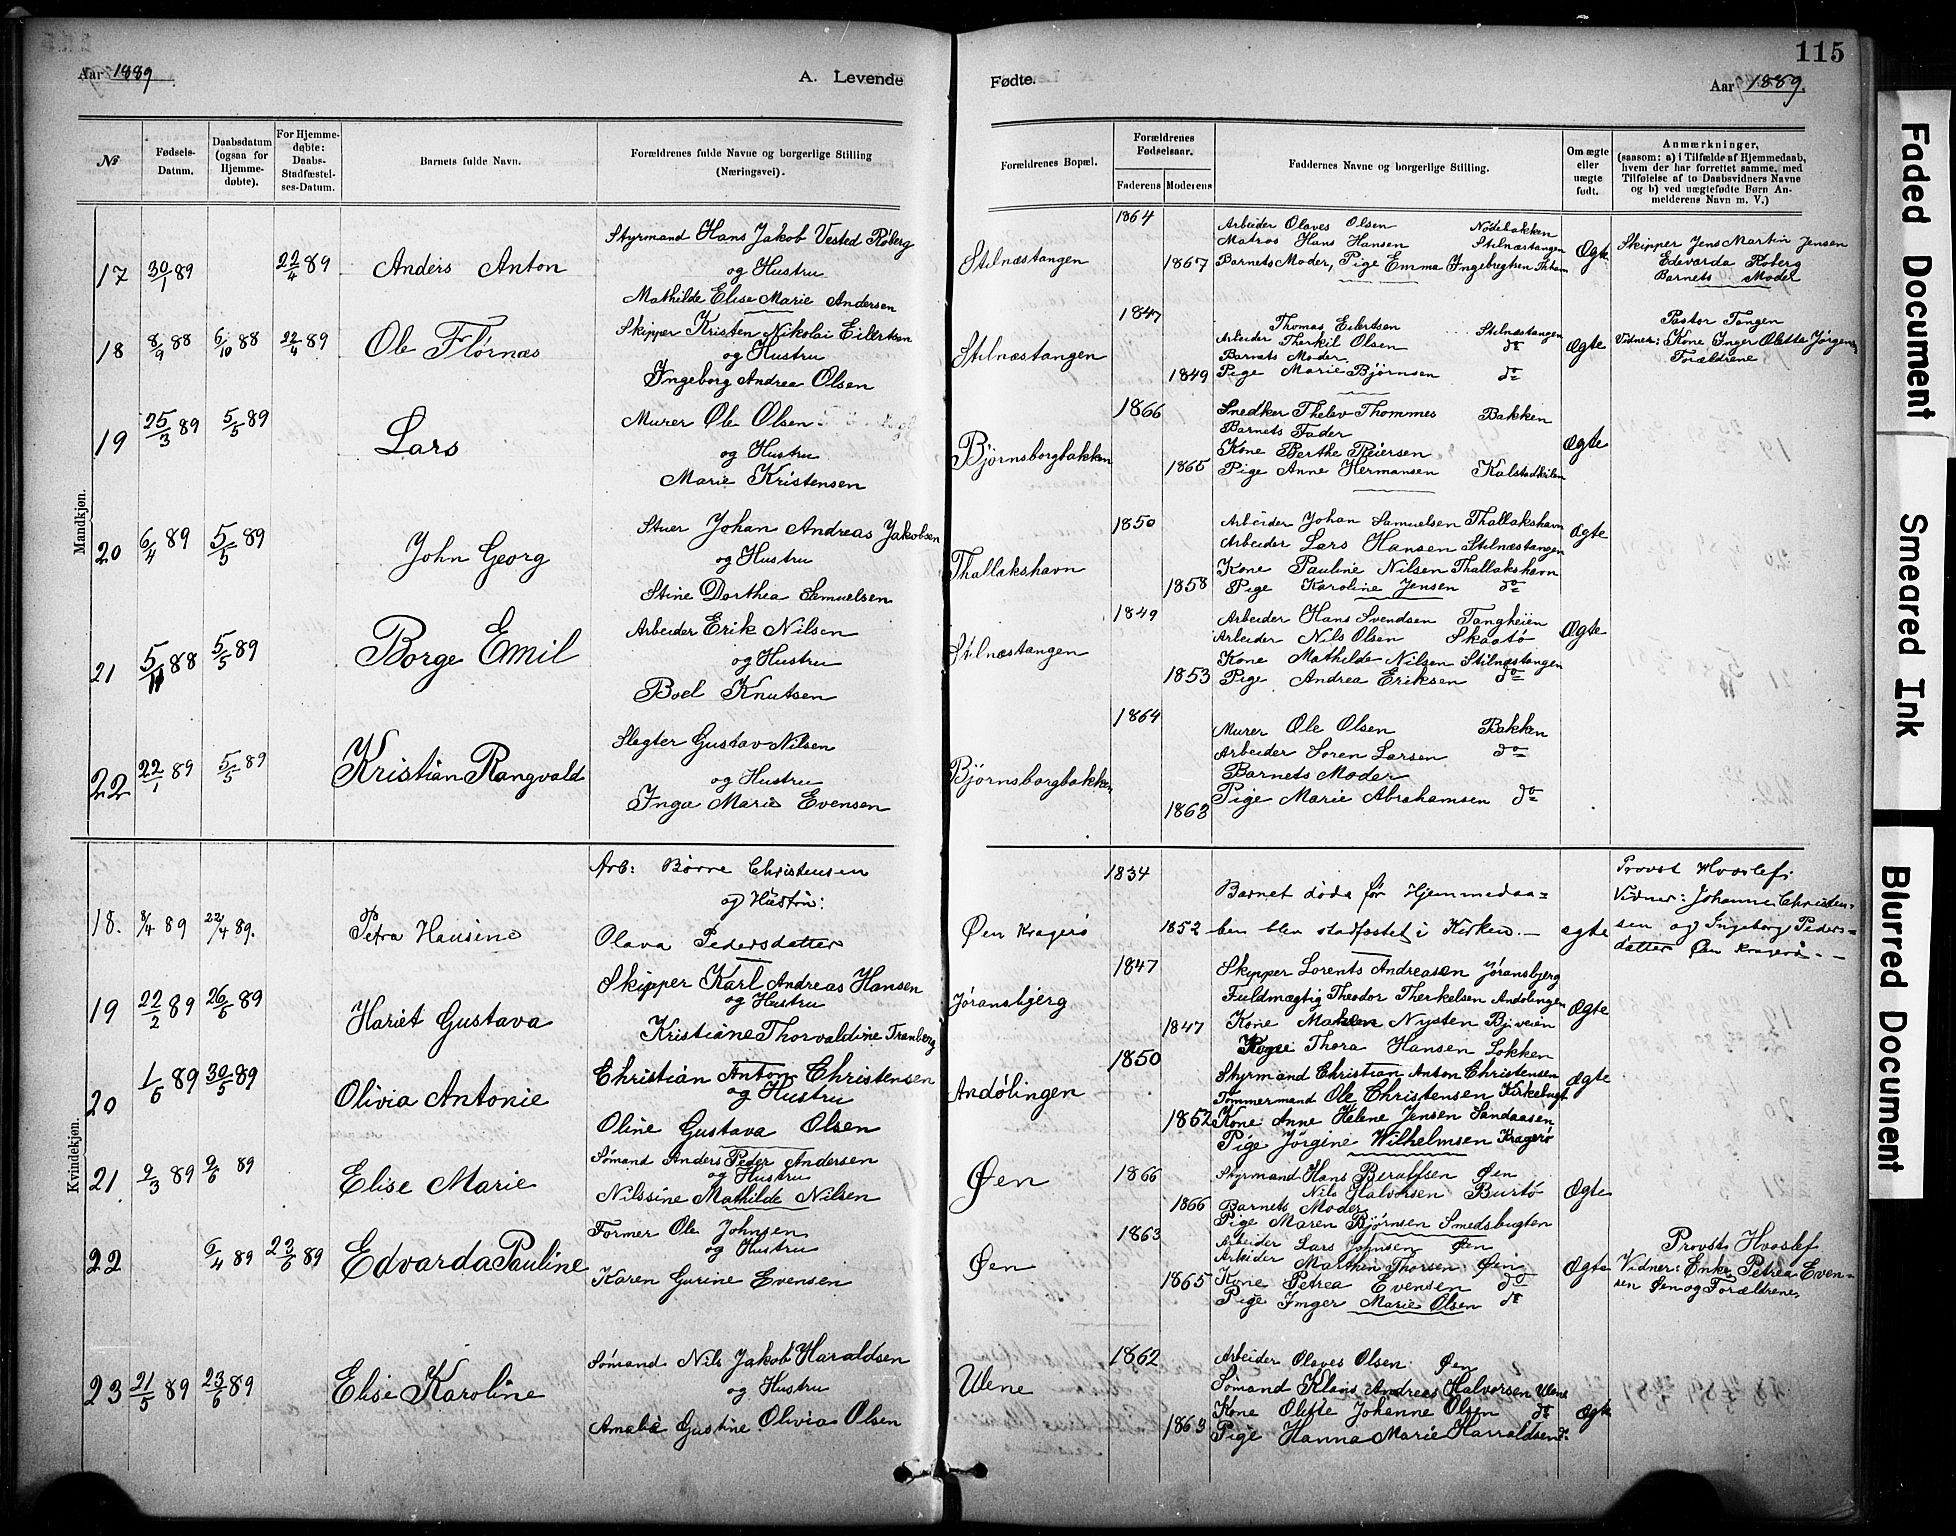 115
Aar 1889.
A. Levende
Fødte.
Aar 1889.
№
Fødsels-Datum.
Daabsdatum (ogsaa for Hjemmedøbte).
For Hjemmedøbte: Daabs-Stadfæstelses-Datum.
Barnets fulde Navn.
Forældrenes fulde Navne og borgerlige Stilling (Næringsvei).
Forældrenes Bopæl.
Forældrenes Fødselsaar.
Faderens
Moderens
Faddernes Navne og borgerlige Stilling.
Om ægte eller uægte født.
Anmærkninger,
(saasom: a) i Tilfælde af Hjemmedaab, hvem der har forrettet samme, med Tilføielse af to Daabsvidners Navne og b) ved uægtefødte Børn Anmelderens Navn m. V.)
Mandkjøn.
17 30/1 89 22/4 89 Anders Anton
Styrmand Hans Jakob Vested Roberg
og Hustru
Mathilde Elise Marie Andersen
Stilnæstangen
1864
1867
Arbeider Olaves Olsen Nødebakken
Matros Hans Hansen Stilnæstangen
Barnets Moder, Pige Emma Ingebregtsen
Ægte
Skipper Jens Martin Jensen
Edvarda Roberg
Barnets Moder
18 8/9 88 6/10 88 22/4 89 Ole Flørnæs
Skipper Kristen Nikolai Eilertsen
og Hustru
Ingeborg Andrea Olsen
Stilnæstangen
1847
1849
Thomas Eilertsen Stilnæstangen
Arbeider Therkil Olsen do
Barnets Moder
Pige Marie Bjørnsen do
Ægte
Pastor Tangen
Vidner: Kone Inger Olette Jørgens
Forældrene
19 25/3 89 5/5 89 Lars
Murer Ole Olsen
og Hustru
Marie Kristensen
Bjørnsborgbakken
1866
1865
Snedker Thelev Thommes Bakken
Barnets Fader
Kone Berthe Reiersen
Pige Anne Hermansen Kalstadkilen
Ægte
20 6/4 89 5/5 89 John Georg
Stuer Johan Andreas Jakobsen
og Hustru
Stine Dorthea Samuelsen
Thallakshavn
1850
1858
Arbeider Johan Samuelsen Thallakshavn
Arbeider Lars Hansen Stilnæstangen
Kone Pauline Nilsen Thallakshavn
Pige Karoline Jensen do
Ægte
21 5/11 88 5/5 89 Borge Emil
Arbeider Erik Nilsen
og Hustru
Boel Knutsen
Stilnæstangen
1849
1853
Arbeider Hans Svendsen Tangheien
Arbeider Nils Olsen Skaatø
Kone Mathilde Nilsen Stilnæstangen
Pige Andrea Eriksen do
Ægte
22 22/1 89 5/5 89 Kristian Rangvald
Slegter Gustav Nilsen
og Hustru
Inga Marie Evensen
Bjørnsborgbakken
1864
1863
Murer Ole Olsen Bakken
Arbeider Søren Larsen do
Barnets Moder
Pige Marie Abrahamsen do
Kvindekjøn.
18. 8/4 89 22/4 89. Petra Hansine
Arb: Børre Christensen
og Hustru:
Olava Pedersdatter
Øen Kragerø
1834
1852
Barnet døde før Hjemmedaa=
ben blev stadfæstet i Kirken. —
ægte
Provst Hvoslef;
Vidner: Johanne Christen-
sen og Ingeborg Peders=
datter Øen Kragerø. -
19 22/2 89 26/5 89 Hariet Gustava
Skipper Karl Andreas Hansen
og Hustru
Kristiane Thorvaldine Tranberg
Jøransbjerg
1847
1847
Skipper Lorents Andreasen Jøransbjerg
Fuldmægtig Theodor Therkelsen Andølingen
Kone Maren Nysten Bjveien
Pige Thora Hansen Løkken
Ægte
20 1/5 89 30/5 89 Olivia Antonie
Christian Anton Christensen
og Hustru
Oline Gustava Olsen
Andølingen
1850
1852
Styrmand Christian Anton Christensen
Tømmermand Ole Christensen Kirkebugt
Kone Anne Helene Jensen Sandaasen
Pige Jørgine Wilhelmsen Kragerø
Ægte
21 9/3 89 9/6 89 Elise Marie
Sømand Anders Peder Andersen
og Hustru
Nilssine Mathilde Nilsen
Øen
1866
1866
Styrmand Hans Berulfsen Øen
Nils Halvorsen Burtø
Barnets Moder
Pige Maren Bjørnsen Smedsbugten
Ægte
22 6/4 89 23/6 89 Edvarda Pauline
Former Ole Johnsen
og Hustru
Karen Gurine Evensen
Øen
1863
1865
Arbeider Lars Johnsen Øen
Arbeider Marthin Thorsen Øen
Kone Petrea Evensen do
Pige Inger Marie Olsen do
Ægte
Provst Hvoslef
Vidner: Enke Petrea Even=
sen Øen og Forældrene,
23 21/5 89 23/6 89 Elise Karoline
Sømand Nils Jakob Haraldsen
og Hustru
Amalie Gustine Olivia Olsen
Ulene
1862
1863
Arbeider Olaves Olsen Øen
Sømand Klaus Andreas Halvorsen Ulene
Kone Olette Johanne Olsen do
Pige Hanna Marie Harraldsen do
Ægte
Faded Document
Smeared Ink
Blurred Document